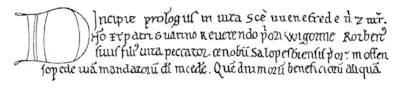 Incipit prologus in vita Scē wenefrede v̄ ⁊ mr̄.
Dño ⁊ patri Guarino Reverendo pori Wigornie Rotbertꝰ
suus filiꝰ vita peccator cenobii Salopesbiensis por in offen
so pede viā mandatorū dī incedē. Quē beneficiorū aliquā